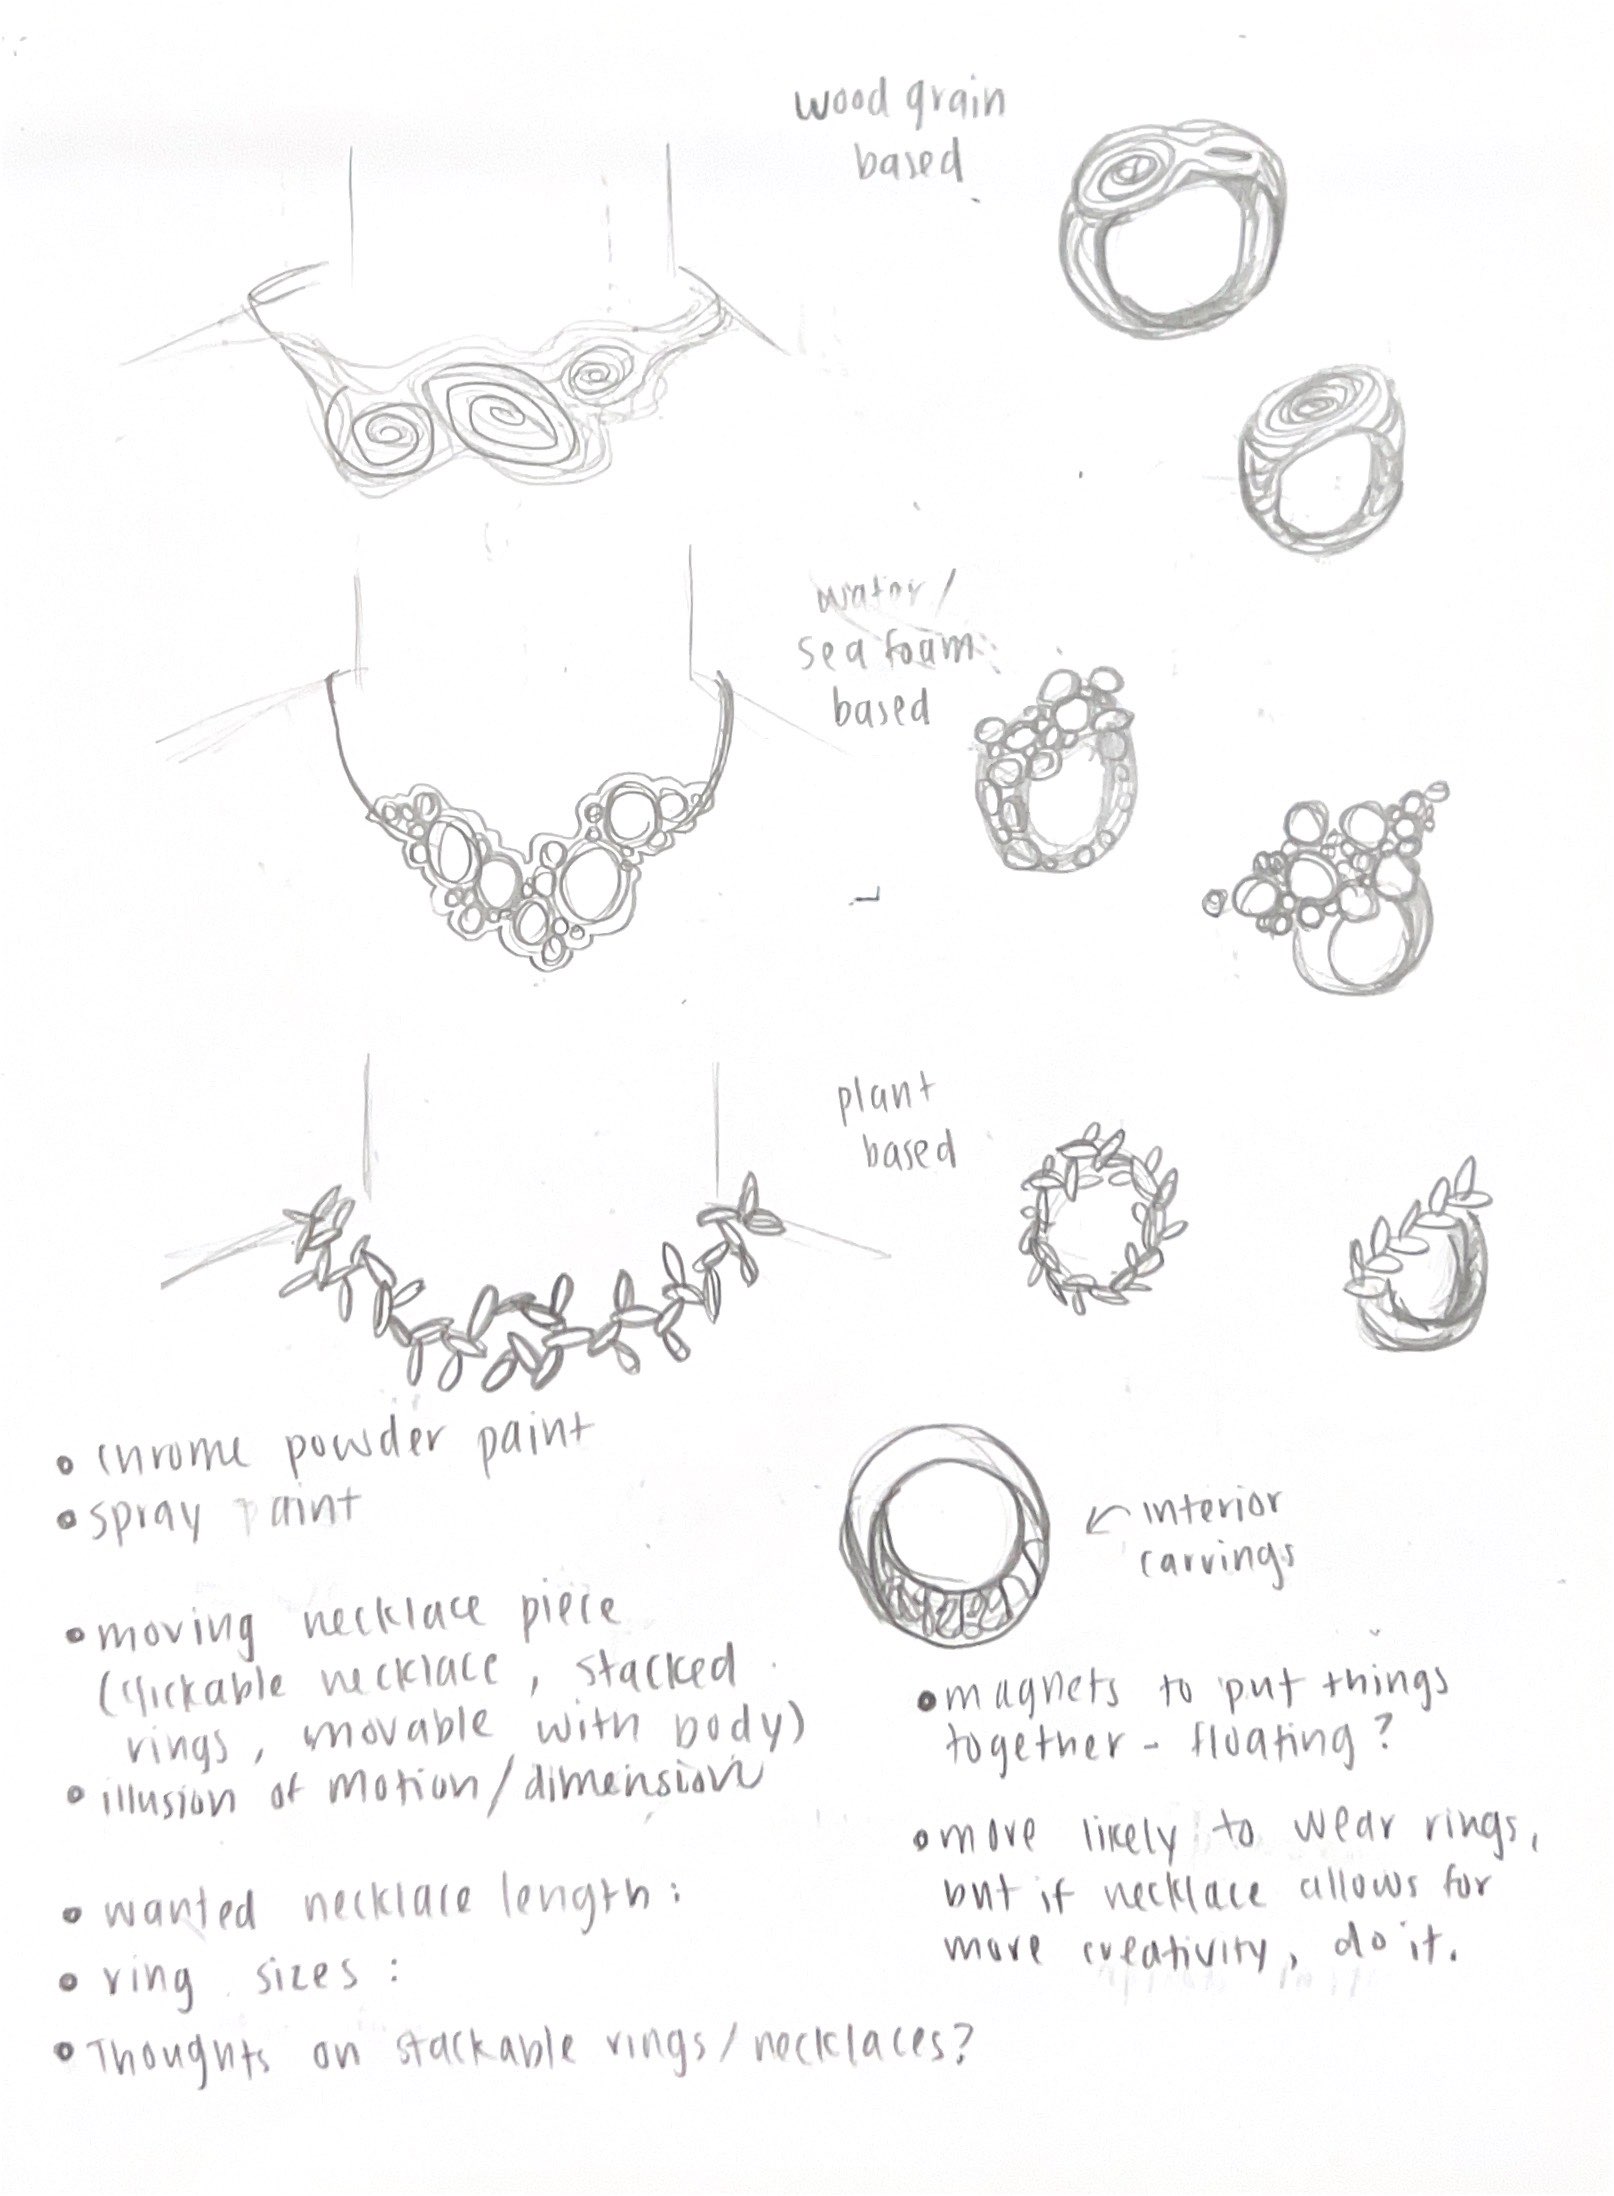 wood grain
based
water/
sea foam
based
plant
based
• chrome powder paint
• spray paint
• moving necklace piece
(clickable necklace, stacked
rings, movable with body)
• illusion of motion/dimension
• wanted necklace length:
• ring sizes:
• Thoughts on stackable rings/necklaces?
← interior
carvings
• magnets to put things
together - floating?
• more likely to wear rings,
but if necklace allows for
more creativity, do it.